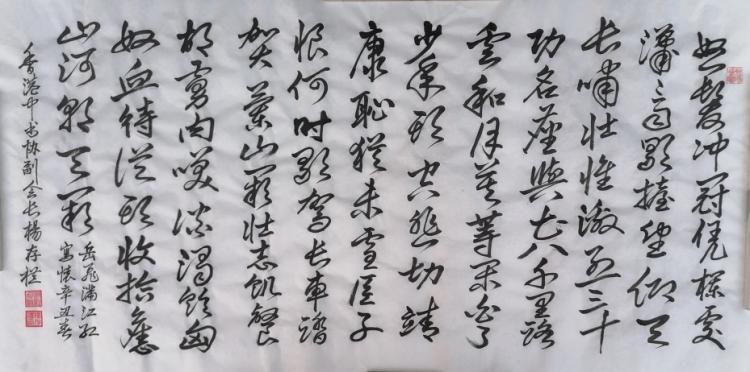 怒髮冲冠凭栏處
潇潇雨歇抬望仰天
长啸壮怀激烈三十
功名尘與土八千里路
雲和月莫等闲白了
少年头空悲切靖
康恥犹未雪臣子
恨何时歇驾长車踏
贺蘭山缺壮志饥餐
胡虏肉笑谈渴饮匈
奴血待從头收拾舊
山河朝天阙
岳飛满江红
寫怀辛丑春
香港中书协副会长楊存